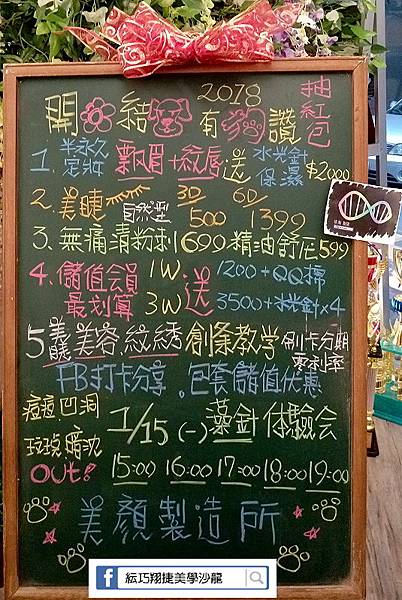 2018 抽紅包
開 結 有 讚
1. 半永久定妝 飄眉+紋唇 送 水光針保濕 $2000
2. 美睫 自然型 3D 500 6D 1399
3. 無痛清粉刺 699 精油舒压 599
4. 儲值會員最划算 1W 3W 送 1200+QQ棉 3500+水光針x4
5 美容紋綉 創条教学 刷卡分期零利率
FB打卡分享。包套儲值优惠
痘疤凹洞
1/15 (一) 藻針体驗会
玟瑰暗沈
OUT! 15:00 16:00 17:00 18:00 19:00
美顏製造所
f 紜巧翔捷美學沙龍